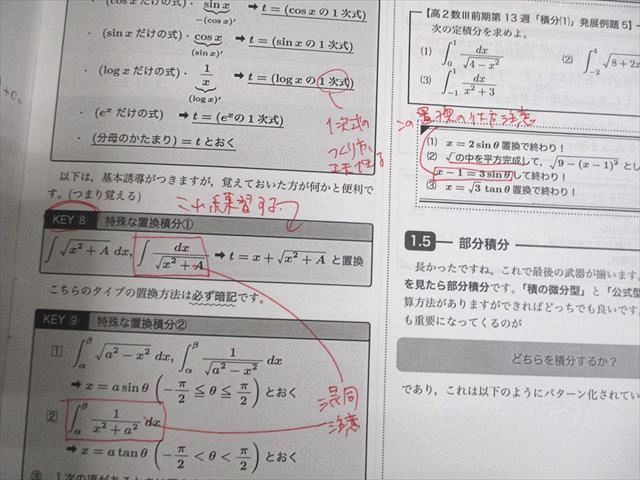 (cosxだけの式)・sinx/−(cosx)′ ➡ t=(cosxの1次式)
(sinxだけの式)・cosx/(sinx)′ ➡ t=(sinxの1次式)
(logxだけの式)・1/x (logx)′ ➡ t=(logxの1次式)
・(e^xだけの式) ➡ t=(e^xの1次式)
・(分母のかたまり)=tとおく
1次式の
つくり方
以下は,基本誘導がつきますが,覚えておいた方が何かと便利で
す。(つまり覚える)
これ練習する
KEY 8 特殊な置換積分①
∫√(x²+A) dx, ∫dx/√(x²+A) ➡ t=x+√(x²+A) と置換
こちらのタイプの置換方法は必ず暗記です。
KEY 9 特殊な置換積分②
1 ∫_α^β √(a²−x²) dx, ∫_α^β 1/√(a²−x²) dx
➡ x=asinθ (−π/2≦θ≦π/2) とおく
2 ∫_α^β 1/(x²+a²) dx
➡ x=atanθ (−π/2<θ<π/2) とおく
混同
注意
【高2数Ⅲ前期第13週「積分(1)」発展例題5】
次の定積分を求めよ。
(1) ∫_0^1 dx/√(4−x²) (2) ∫_{−2}^4 √(8+2x
(3) ∫_{−1}^1 dx/(x²+3)
置換の仕方注意
(1) x=2sinθ置換で終わり!
(2) √の中を平方完成して,√(9−(x−1)²) とし
x−1=3sinθして終わり!
(3) x=√3 tanθ置換で終わり!
1.5 部分積分
長かったですね。これで最後の武器が揃います。
を見たら部分積分です。「積の微分型」と「公式型
算方法がありますができればどっちでも良いです。
も重要になってくるのが
どちらを積分するか?
であり,これは以下のようにパターン化されてい